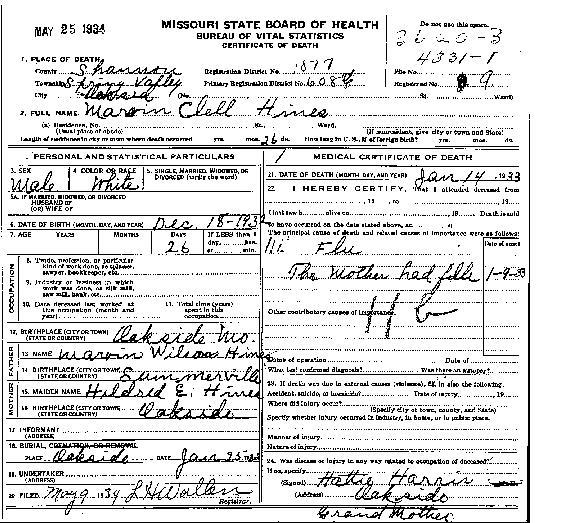 MAY 25 1934
MISSOURI STATE BOARD OF HEALTH
BUREAU OF VITAL STATISTICS
CERTIFICATE OF DEATH
Do not use this space.
4331-1
1. PLACE OF DEATH
County Shannon Registration District No. 1877 File No.
Township Spring Valley Primary Registration District No. Registered No. 9
City Oakside No. St. Ward)
2. FULL NAME Marvin Clell Hines
(a) Residence, No. St. Ward.
(Usual place of abode) (If nonresident, give city or town and State)
Length of residence in city or town where death occurred yrs. mos. 26 ds. How long in U. S., if of foreign birth? yrs. mos. ds.
PERSONAL AND STATISTICAL PARTICULARS
3. SEX Male
4. COLOR OR RACE White
5. SINGLE, MARRIED, WIDOWED, OR DIVORCED (write the word)
5A. IF MARRIED, WIDOWED, OR DIVORCED
HUSBAND OF
(OR) WIFE OF
6. DATE OF BIRTH (MONTH, DAY, AND YEAR) Dec. 18-1932
7. AGE YEARS MONTHS DAYS 26 IF LESS than 1 day, hrs. or min.
OCCUPATION
8. Trade, profession, or particular kind of work done, as spinner, sawyer, bookkeeper, etc.
9. Industry or business in which work was done, as silk mill, saw mill, bank, etc.
10. Date deceased last worked at this occupation (month and year)
11. Total time (years) spent in this occupation
12. BIRTHPLACE (CITY OR TOWN) (STATE OR COUNTRY) Oakside Mo.
FATHER
13. NAME Marvin Wilson Hines
14. BIRTHPLACE (CITY OR TOWN) (STATE OR COUNTRY) Summerville
MOTHER
15. MAIDEN NAME Hildred E. Hines
16. BIRTHPLACE (CITY OR TOWN) (STATE OR COUNTRY) Oakside
17. INFORMANT
(ADDRESS)
18. BURIAL, CREMATION, OR REMOVAL
PLACE Oakside DATE Jan 25
19. UNDERTAKER
(ADDRESS)
20. FILED May 9 1934 Registrar
MEDICAL CERTIFICATE OF DEATH
21. DATE OF DEATH (MONTH, DAY, AND YEAR) Jan 14 1933
22. I HEREBY CERTIFY, That I attended deceased from
, 19 , to , 19
I last saw h alive on , 19 Death is said
to have occurred on the date stated above, at m.
The principal cause of death and related causes of importance were as follows:
Date of onset
Flu
The Mother had 1-9-33
Other contributory causes of importance:
11 b
Name of operation Date of
What test confirmed diagnosis? Was there an autopsy?
23. If death was due to external causes (violence), fill in also the following:
Accident, suicide, or homicide? Date of injury , 19
Where did injury occur?
(Specify city or town, county, and State)
Specify whether injury occurred in industry, in home, or in public place.
Manner of injury
Nature of injury
24. Was disease or injury in any way related to occupation of deceased?
If so, specify
(Signed) Hattie Harris
(Address) Oakside
Grand Mother